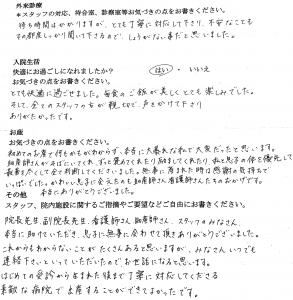 外来診療
*スタッフの対応、待合室、診察室等お気づきの点をお書きください。
待ち時間はかかりますが、とても丁寧に対応して下さり、不安なことも
その都度しっかり聞いて下さるので、しょうがない事だと思いました。
入院生活
快適にお過ごしになれましたか? はい ・ いいえ
お気づきの点をお書きください。
とても快適に過ごせました。毎食のご飯が美しくとても楽しみでした。
そして、全てのスタッフの方が親しみ で声をかけて下さり
ありがたかったです。
お産
お気づきの点をお書きください。
初めてのお産で何もかもがわからず、本当に大暴れなお で大変だったと思います。
助産師さんがそばにいてくれ、ずっと褒めてくれたり励ましてくれたり、私と息子の体を優先して
最善を尽くして全て判断してくださいました。無事に産まれた時は感謝の気持ちで
いっぱいでした。かわいい息子に会えたのも助産師さん看護師さんたちのおかげです。
その他 本当にありがとうございました。
スタッフ、院内施設に関するご指摘やご要望などご自由にお書きください。
院長先生、副院長先生、看護師さん、助産師さん、スタッフのみなさん、
本当に助けていただき、息子に無事に会わせて頂きありがとうございました。
これからもわからないことがたくさんあると思いますが、みなさんいつでも
連絡下さいといっていただいたのでお世話になると思います。
はじめての受診から産まれた後まで丁寧に対応してくださる
素敵な病院で出産することができてよかったです。